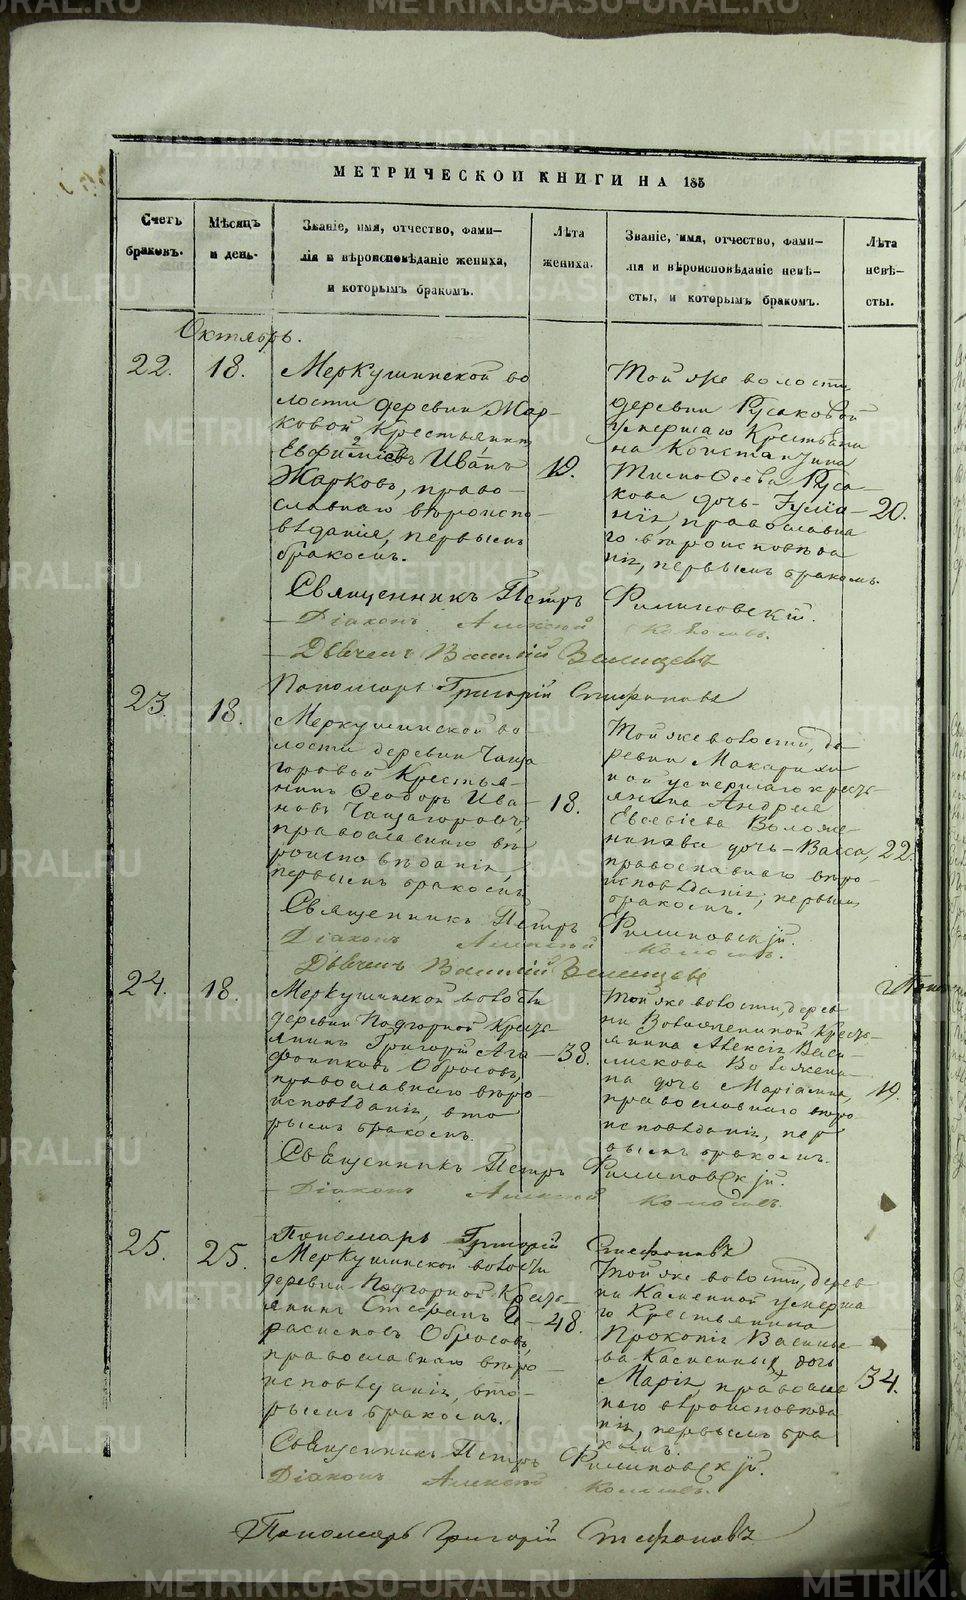 МЕТРИЧЕСКОЙ КНИГИ НА 185
Счетъ
браковъ.
Мѣсяцъ
и день.
Званіе, имя, отчество, фами-
лія и вѣроисповѣданіе жениха,
и которымъ бракомъ.
Лѣта
жениха.
Званіе, имя, отчество, фами-
лія и вѣроисповѣданіе невѣ-
сты, и которымъ бракомъ.
Лѣта
невѣ-
сты.
Октябрь.
22.
18.
Меркушинской во
лости деревни Жар-
ковой Крестьянин
Иванъ
Жарковъ, право-
славнаго вѣроиспо-
вѣданія, первымъ
бракомъ.
19.
Той же волости
деревни Русаковой
умершаго Крестьяни
на Константина
Тимофеева Руса-
кова дочь Іуліа-
нія, православна
го вѣроисповѣда
нія, первымъ бракомъ.
20.
Священникъ Петръ Филиповскій.
Діаконъ Алексій
Дьячекъ Василій
Пономарь Григорій Стефановъ
23.
18.
Меркушинской во
лости деревни Чаща
горовой Крестья-
нинъ Феодоръ Ива
новъ Чащагоровъ,
православнаго вѣ
роисповѣданія,
первымъ бракомъ
18.
Той же волости, де
ревни Макарихи
ной умершаго крестья
янина Андрея
Евсевіева Воложе-
нинова дочь Васса,
православнаго вѣро-
исповѣданія, первымъ
бракомъ.
22.
Священникъ Петръ Филиповскій.
Діаконъ Алексій
Дьячекъ Василій
24.
18.
Меркушинской волости
деревни Подгорной Кресть
янинъ Григорій Ага
фонниковъ Обросовъ,
православнаго вѣро-
исповѣданія, вто
рымъ бракомъ.
38.
Той же волости, дерев
ни Воложениной Кресть-
янина Алексія Васи
Воложени
на дочь Маріамна,
православнаго вѣро
исповѣданія, пер
вымъ бракомъ.
19.
Священникъ Петръ Филиповскій.
Діаконъ Алексій
Пономарь Григорій Стефановъ
25.
25.
Меркушинской волости
деревни Подгорной Кресть-
янинъ Стефанъ Ге
расимовъ Обросовъ,
православнаго вѣро-
исповѣданія, вто-
рымъ бракомъ.
48.
Той же волости, дерев
ни Каменной умерша
го Крестьянина
Прокопія Василье
ва Каменныхъ дочь
Марія, православ
наго вѣроисповѣда
нія, первымъ бра
комъ.
34.
Священникъ Петръ Филиповскій.
Діаконъ Алексій
Пономарь Григорій Стефановъ
METRIKI.GASO-URAL.RU